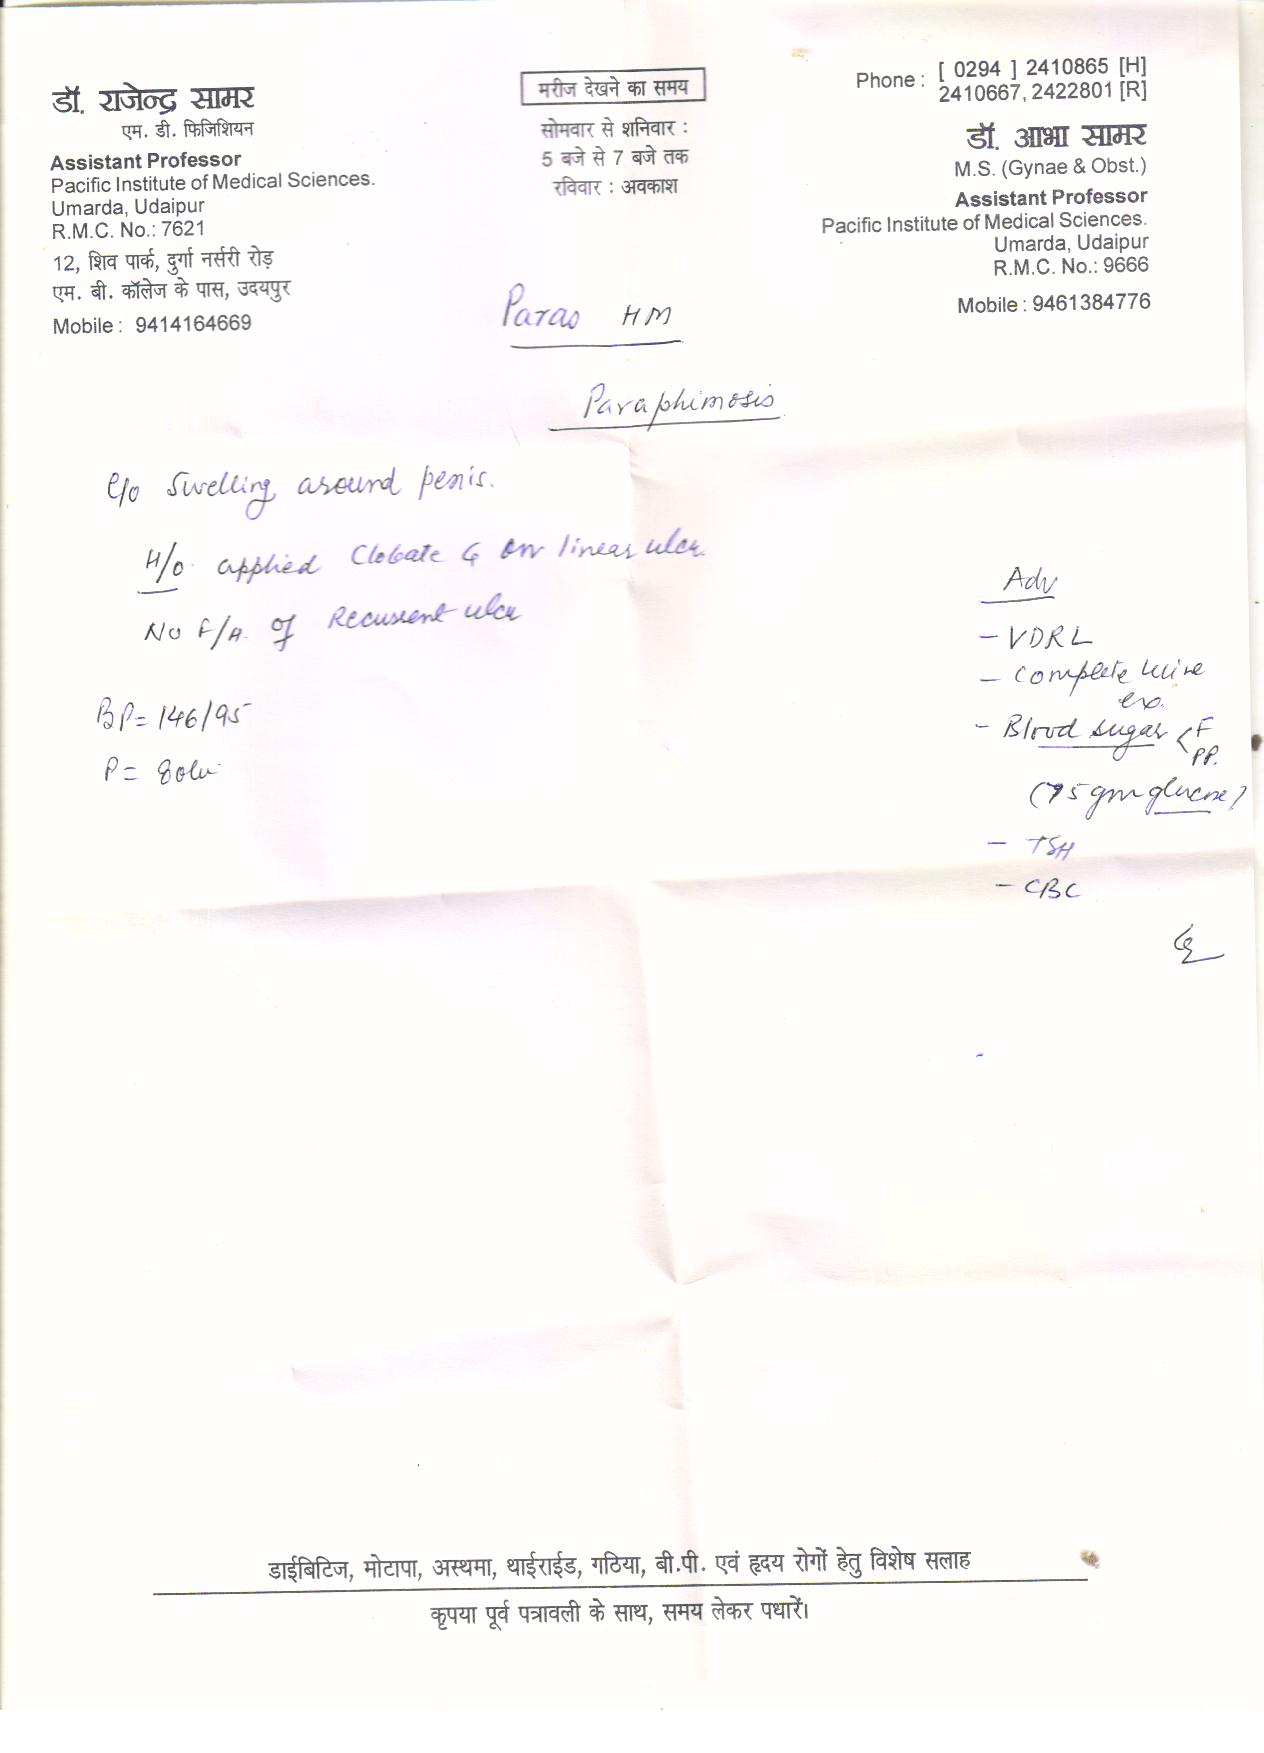 डॉ. राजेन्द्र सामर
एम. डी. फिजिशियन
Assistant Professor
Pacific Institute of Medical Sciences.
Umarda, Udaipur
R.M.C. No.: 7621
12, शिव पार्क, दुर्गा नर्सरी रोड़
एम. बी. कॉलेज के पास, उदयपुर
Mobile : 9414164669
मरीज देखने का समय
सोमवार से शनिवार :
5 बजे से 7 बजे तक
रविवार : अवकाश
Phone : [ 0294 ] 2410865 [H]
2410667, 2422801 [R]
डॉ. आभा सामर
M.S. (Gynae & Obst.)
Assistant Professor
Pacific Institute of Medical Sciences.
Umarda, Udaipur
R.M.C. No.: 9666
Mobile : 9461384776
Paras HM
Paraphimosis
C/o Swelling around penis.
H/o applied Clobate G on linear ulcer
No F/H. of Recurrent ulcer
BP = 146/95
P = 80
Adv
- VDRL
- Complete urine
ex.
- Blood sugar < F
PP.
(75 gm glucose)
- TSH
- CBC
डाईबिटिज, मोटापा, अस्थमा, थाईराईड, गठिया, बी.पी. एवं हृदय रोगों हेतु विशेष सलाह
कृपया पूर्व पत्रावली के साथ, समय लेकर पधारें।